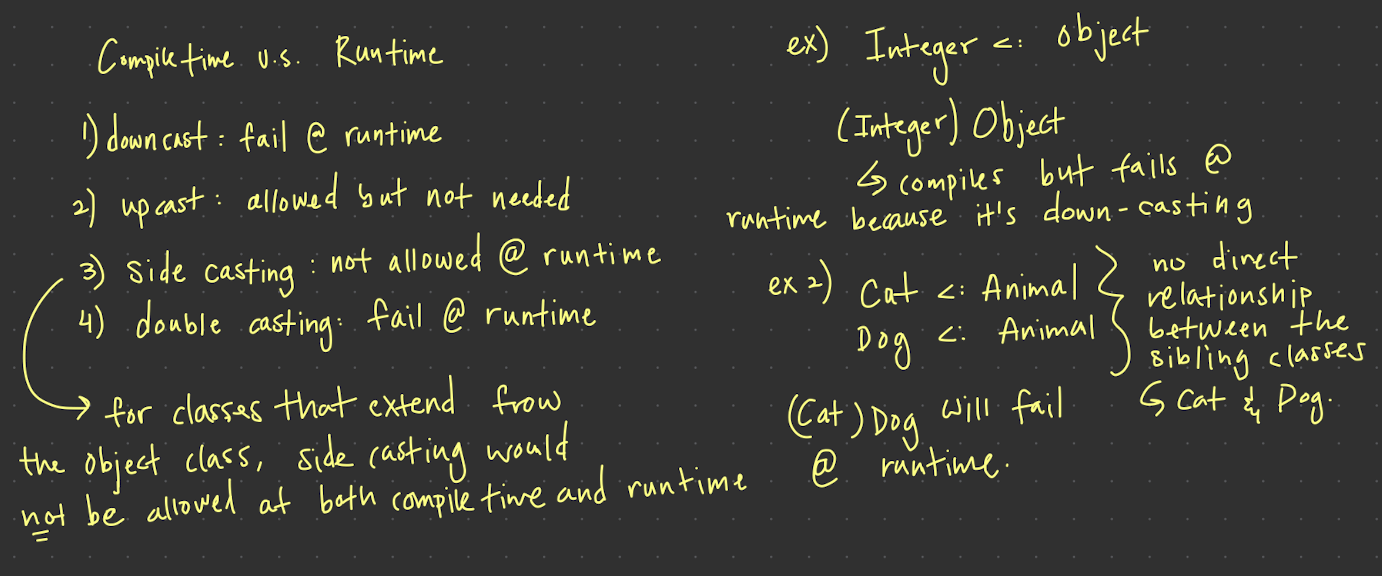 Compile time v.s. Runtime
1) downcast : fail @ runtime
2) upcast : allowed but not needed
3) Side casting : not allowed @ runtime
4) double casting: fail @ runtime
for classes that extend from
the Object class, side casting would
not be allowed at both compile time and runtime
ex) Integer <: object
(Integer) Object
↳ compiles but fails @
runtime because it's down-casting
ex 2) Cat <: Animal
Dog <: Animal
no direct
relationship
between the
sibling classes
↳ Cat & Dog.
(Cat) Dog will fail
@ runtime.